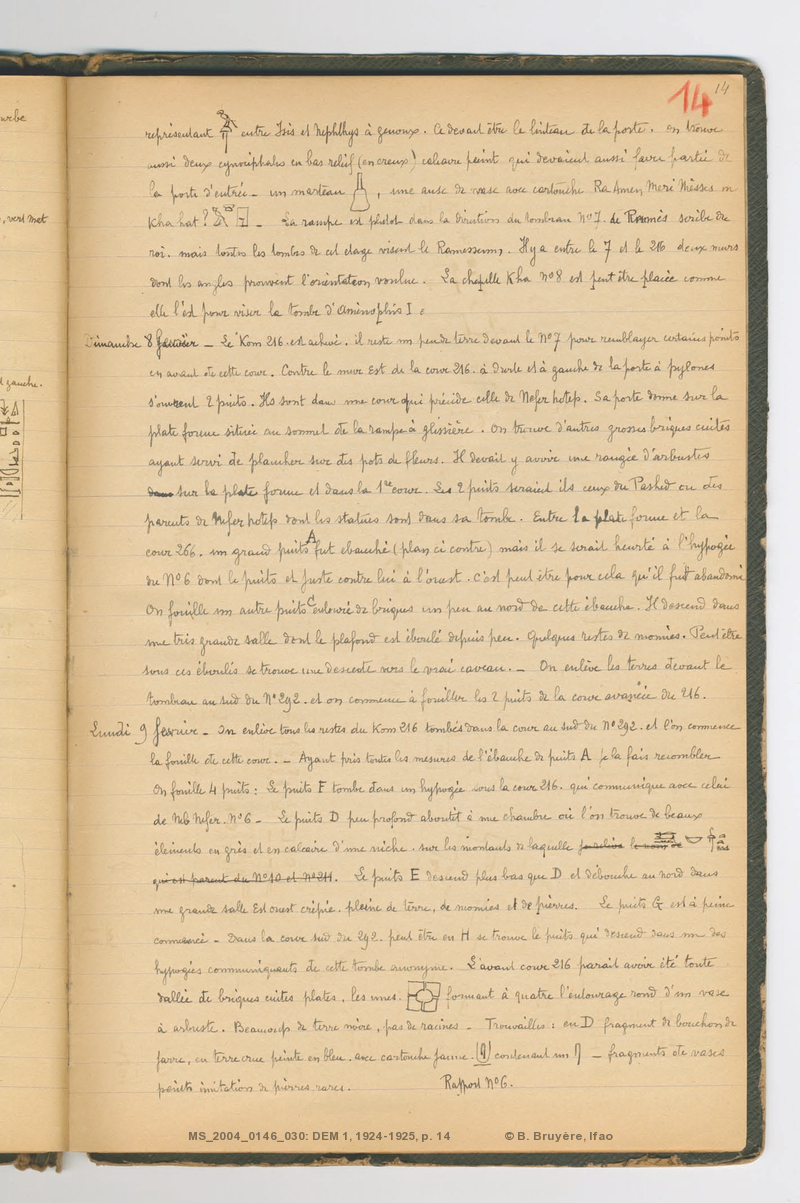 14
14
représentant entre Isis et Nephthys à genoux. Ce devait être le linteau de la porte. On trouve
aussi deux cynocéphales en bas relief (en creux) calcaire peint qui devaient aussi faire partie de
la porte d'entrée – un marteau , une anse de vase avec cartouche Ra Amen Meri Messes m
Kha hat ? – La rampe est plutot dans la direction du tombeau N° 7. de Ramès scribe du
roi. mais toutes les tombes de cet etage visent le Ramesseum. Il y a entre le 7 et le 216 deux murs
dont les angles prouvent l'orientation voulue. La chapelle Kha N° 8 est peut être placée comme
elle l'est pour viser la tombe d'Aménophis I
Dimanche 8 fevrier – Le Kom 216 est achevé. il reste un peu de terre devant le N° 7 pour remblayer certains points
en avant de cette cour. Contre le mur Est de la cour 216. à droite et à gauche de la porte à pylones
s'ouvrent 2 puits. Ils sont dans une cour qui précède celle de Nefer hotep. Sa porte donne sur la
plate forme située au sommet de la rampe à glissière. On trouve d'autres grosses briques cuites
ayant servi de plancher sur des pots de fleurs. Il devait y avoir une rangée d'arbustes
dans sur la plate forme et dans la 1re cour. Les 2 puits seraient ils ceux du Pashed ou des
parents de Nefer hotep dont les statues sont dans sa tombe. Entre la plate forme et la
cour 266. un grand puits A fut ebauché (plan ci contre) mais il se serait heurté à l'hypogée
du N° 6 dont le puits est juste contre lui à l'ouest. c'est peut etre pour cela qu'il fut abandonné
On fouille un autre puits C entouré de briques un peu au nord de cette ébauche. Il descend dans
une très grande salle dont le plafond est éboulé depuis peu. Quelques restes de momies. Peut être
sous ces éboulis se trouve une descente vers le vrai caveau. – On enlève les terres devant le
tombeau au sud du N° 292. et on commence à fouiller les 2 puits de la cour avancée du 216.
Lundi 9 fevrier – On enlève tous les restes du Kom 216 tombés dans la cour au sud du N° 292. et l'on commence
la fouille de cette cour. – Ayant pris toutes les mesures de l'ébauche de puits A je la fais recombler
On fouille 4 puits : Le puits F tombe dans un hypogée sous la cour 216. qui communique avec celui
de Neb Nefer. N° 6 – Le puits D peu profond aboutit à une chambre où l'on trouve de beaux
éléments en grès et en calcaire d'une niche. sur les montants de laquelle le nom de
qui est parent du N° 10 et N° 211. Le puits E descend plus bas que D et débouche au nord dans
une grande salle Est ouest crépie. pleine de terre, de momies et de pierres. Le puits G est à peine
commencé – Dans la cour sud du 292. peut être en H se trouve le puits qui descend dans un des
hypogées communiquants de cette tombe anonyme. L'avant cour 216 parait avoir été toute
dallée de briques cuites plates, les unes formant à quatre l'entourage rond d'un vase
à arbuste. Beaucoup de terre noire, pas de racines – Trouvailles : en D fragment de bouchon de
jarre, en terre crue peinte en bleu. avec cartouche jaune. contenant un – fragments de vases
peints imitation de pierres rares. Rapport N° 6.
urbe
, vert met
gauche.
MS_2004_0146_030: DEM 1, 1924-1925, p. 14 © B. Bruyère, Ifao